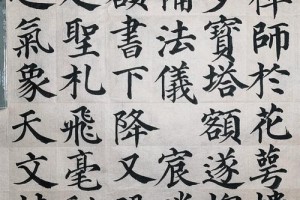 禪師於花萼樓
寶塔額遂
法儀宸
書下降又
聖札飛毫
之氣象天文